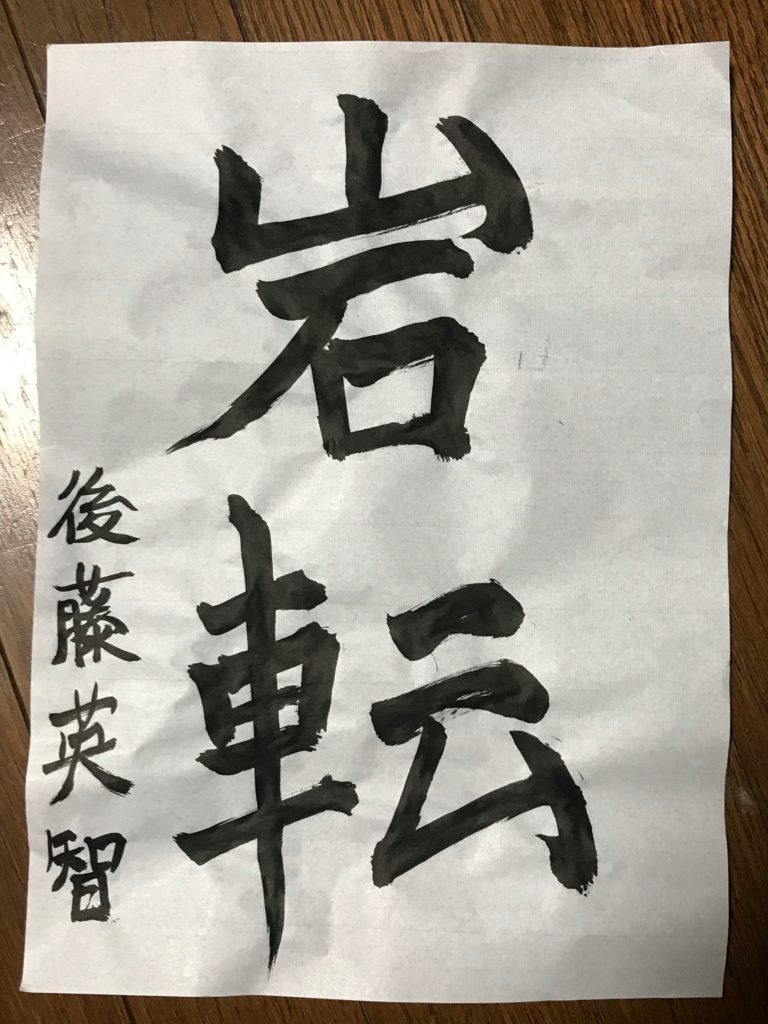 岩転
後藤英智